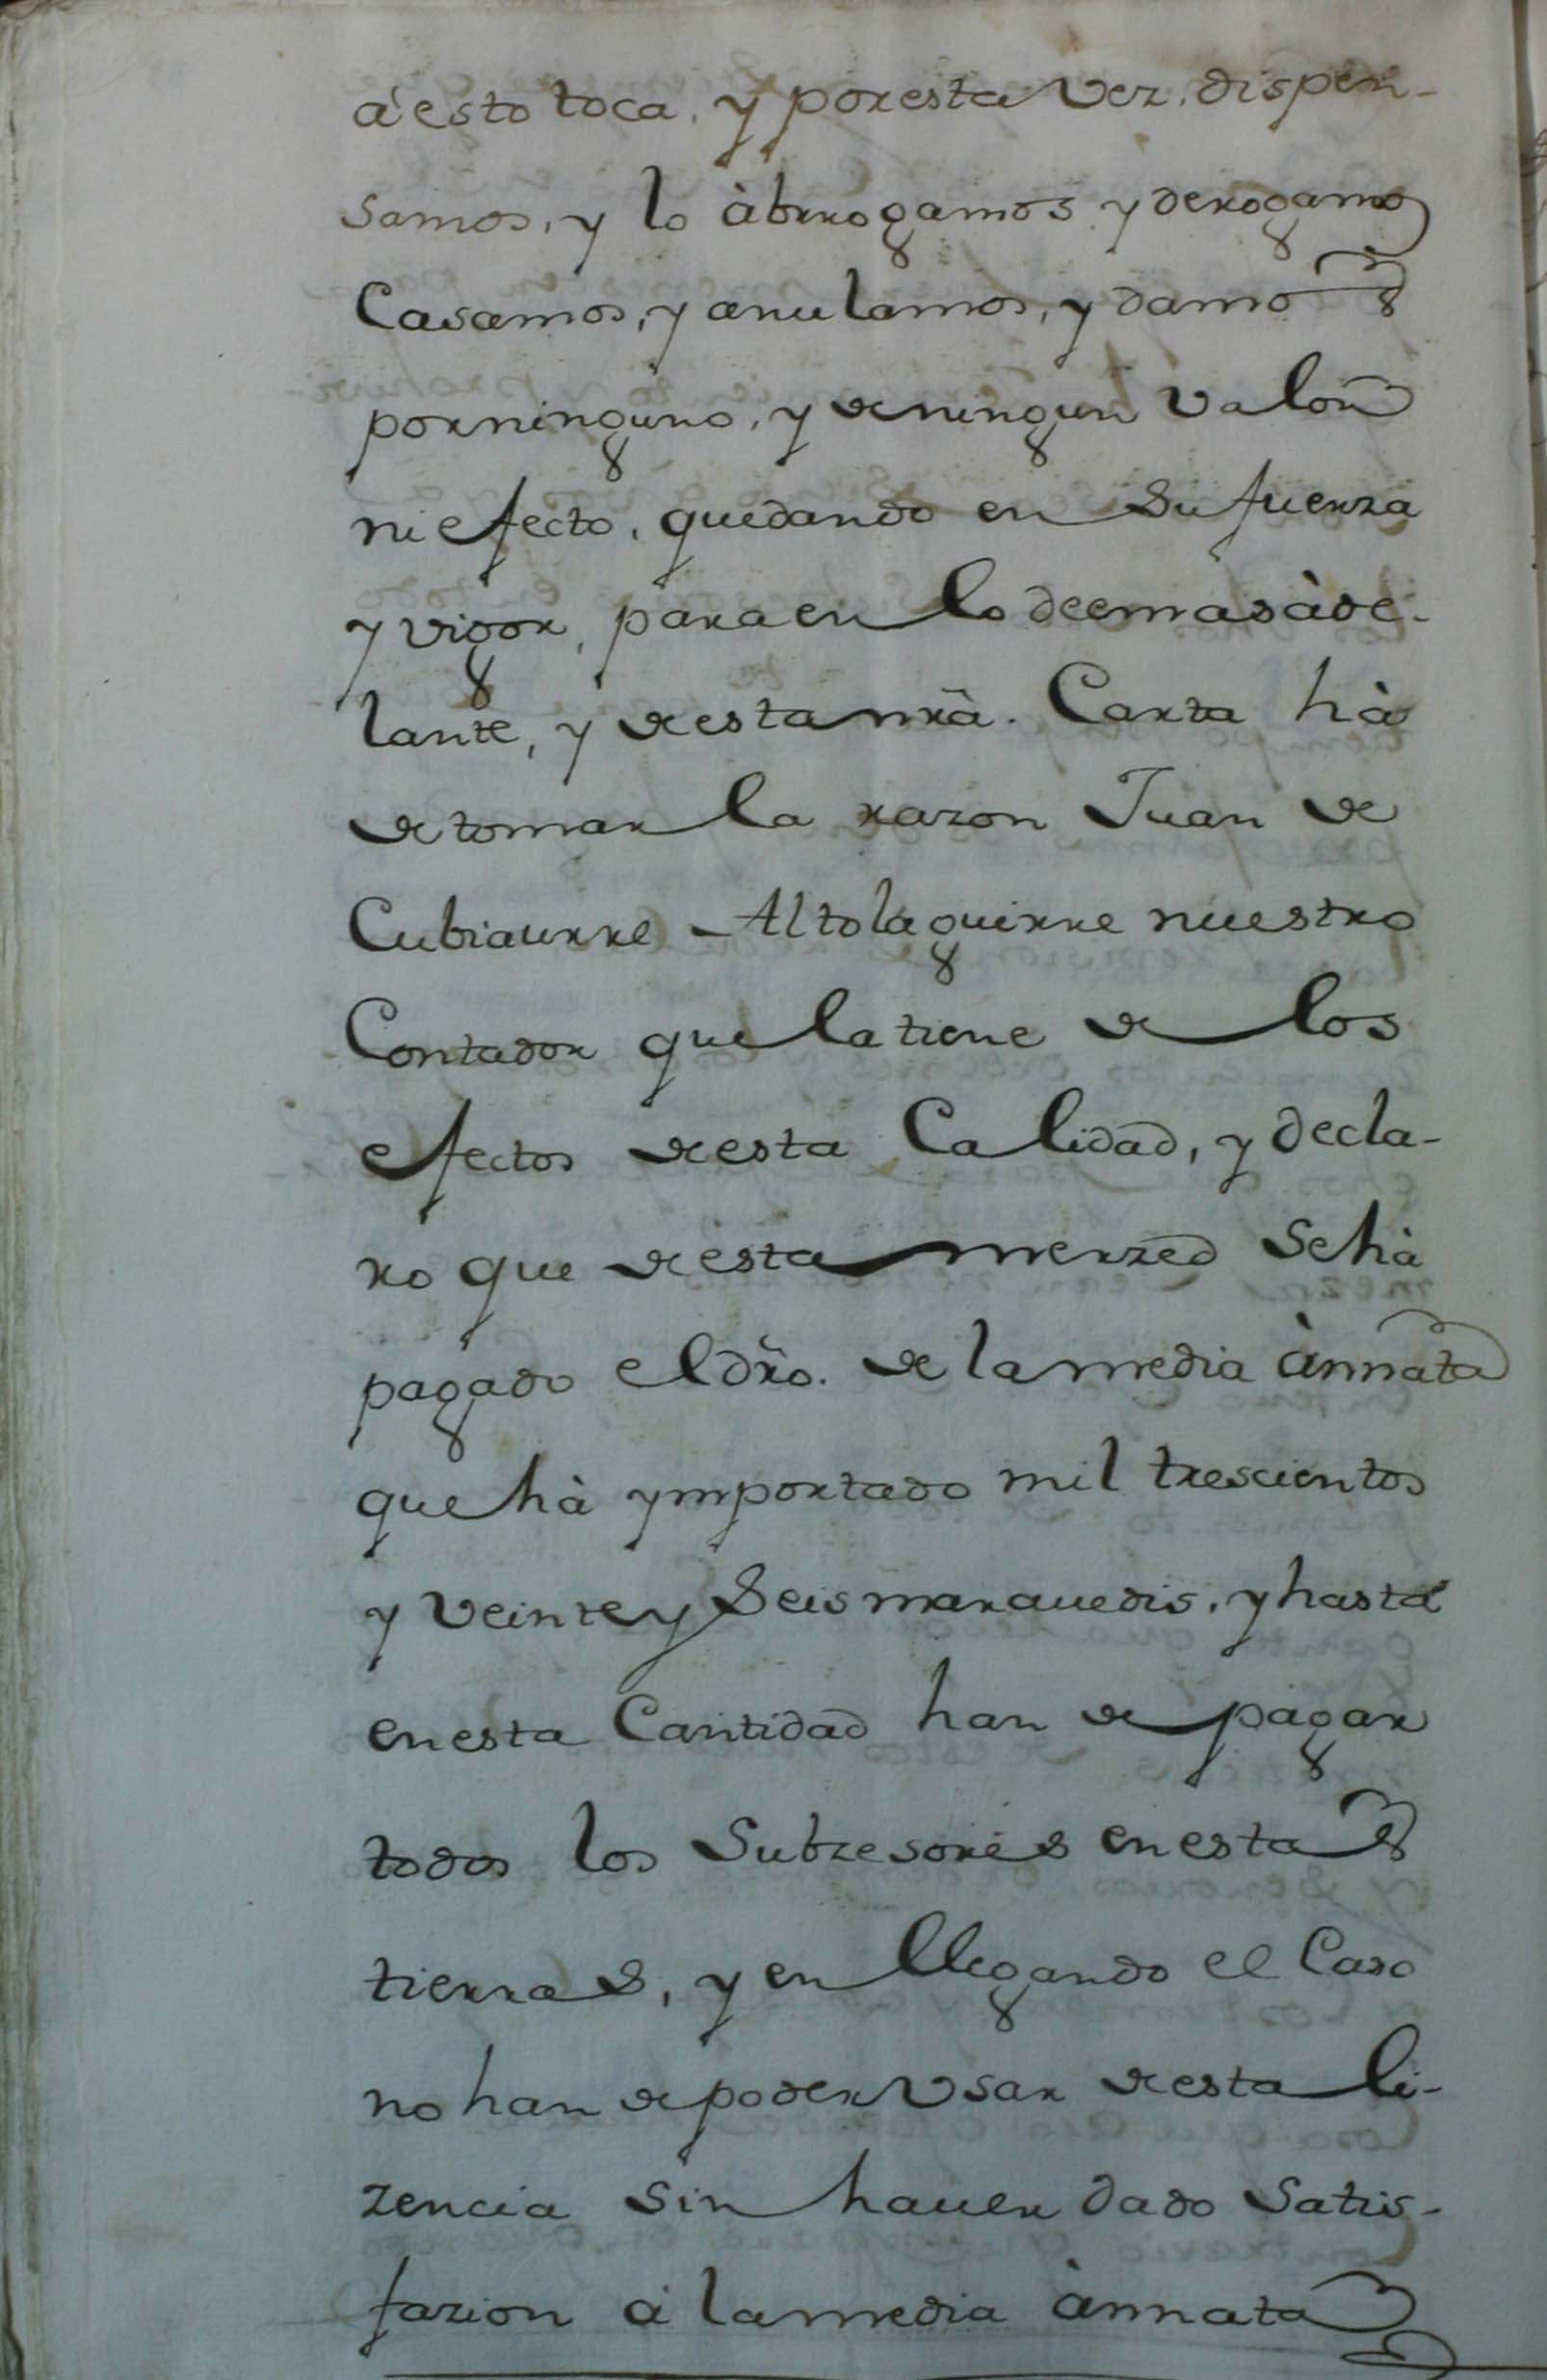 à esto toca, y por esta vez, dispen-
samos, y lo àbrrogamos y derogamos
Casamos, y anulamos, y damos
por ninguno, y de ningun valor
ni efecto, quedando en su fuerza
y vigor, para en lo deemas àde-
lante, y de esta nrã. Carta hà
de tomar la razon Juan de
Cubiaurre Altolaguirre nuestro
Contador que la tiene de los
efectos de esta Calidad, y decla-
ro que de esta merzed se hà
pagado el dr̃o. de la media ànnata
que hà ymportado mil trescientos
y veinte y seis marauedis, y hasta
en esta Cantidad han de pagar
todos los Subzesores en estas
tierras, y en llegando el Caso
no han de poder vsar de esta li-
zencia sin hauer dado Satis-
fazion à la media ànnata